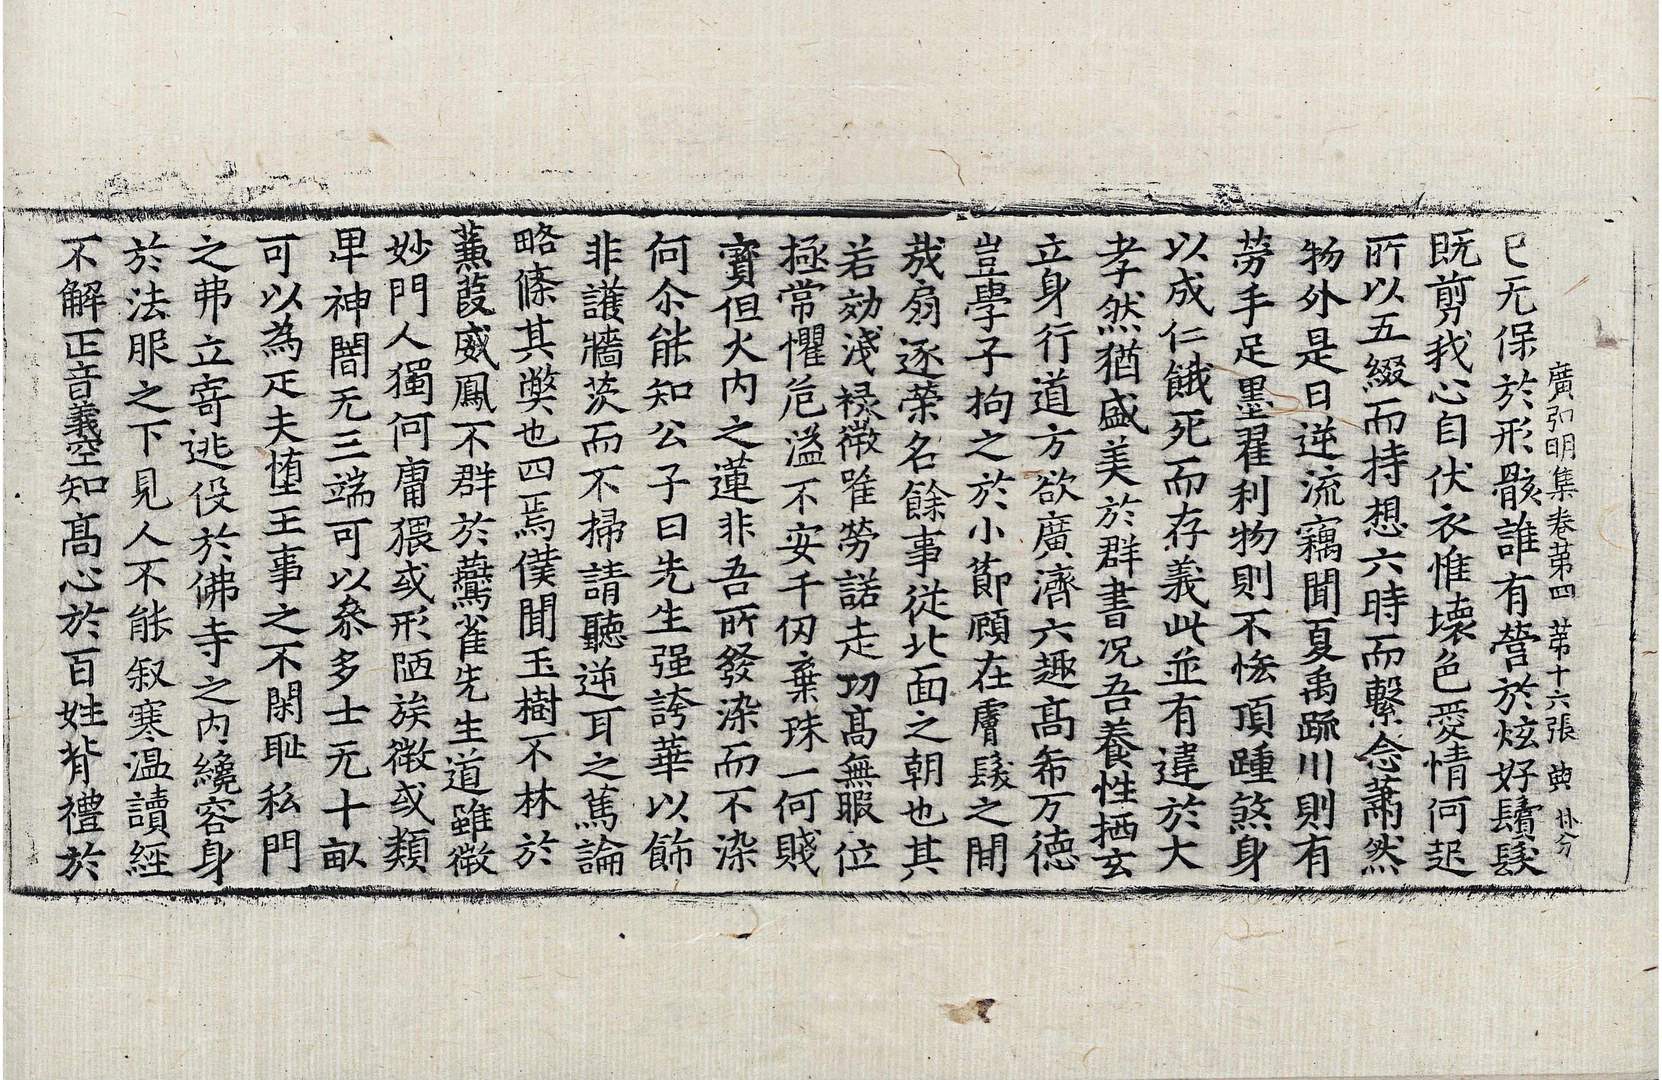 廣弘明集卷第四 第十六張 典
已无保於形骸誰有營於炫好鬚髮
既剪我心自伏衣惟壞色愛情何起
所以五綴而持想六時而繫念蕭然
物外是曰逆流竊聞夏禹疏川則有
勞手足墨翟利物則不悋頂踵煞身
以成仁餓死而存義此並有違於大
孝然猶盛美於群書況吾養性栖玄
立身行道方欲廣濟六趣高希万德
豈學子拘之於小節顧在膚髮之間
哉扇逐榮名餘事從北面之朝也其
若効淺祿微唯勞諾走功高無暇位
極常懼危溢不安千仞棄珠一何賤
寶但火內之蓮非吾所發染而不染
何尒能知公子曰先生强誇華以飾
非護牆茨而不掃請聽逆耳之篤論
略條其獘也四焉僕聞玉樹不林於
蒹葭威鳳不群於鷰雀先生道雖微
妙門人獨何庸猥或形陋族微或類
卑神闇无三端可以叅多士无十畝
可以為疋夫墮王事之不閑耻私門
之弗立寄逃役於佛寺之內纔容身
於法服之下見人不能叙寒温讀經
不解正音義空知高心於百姓背禮於